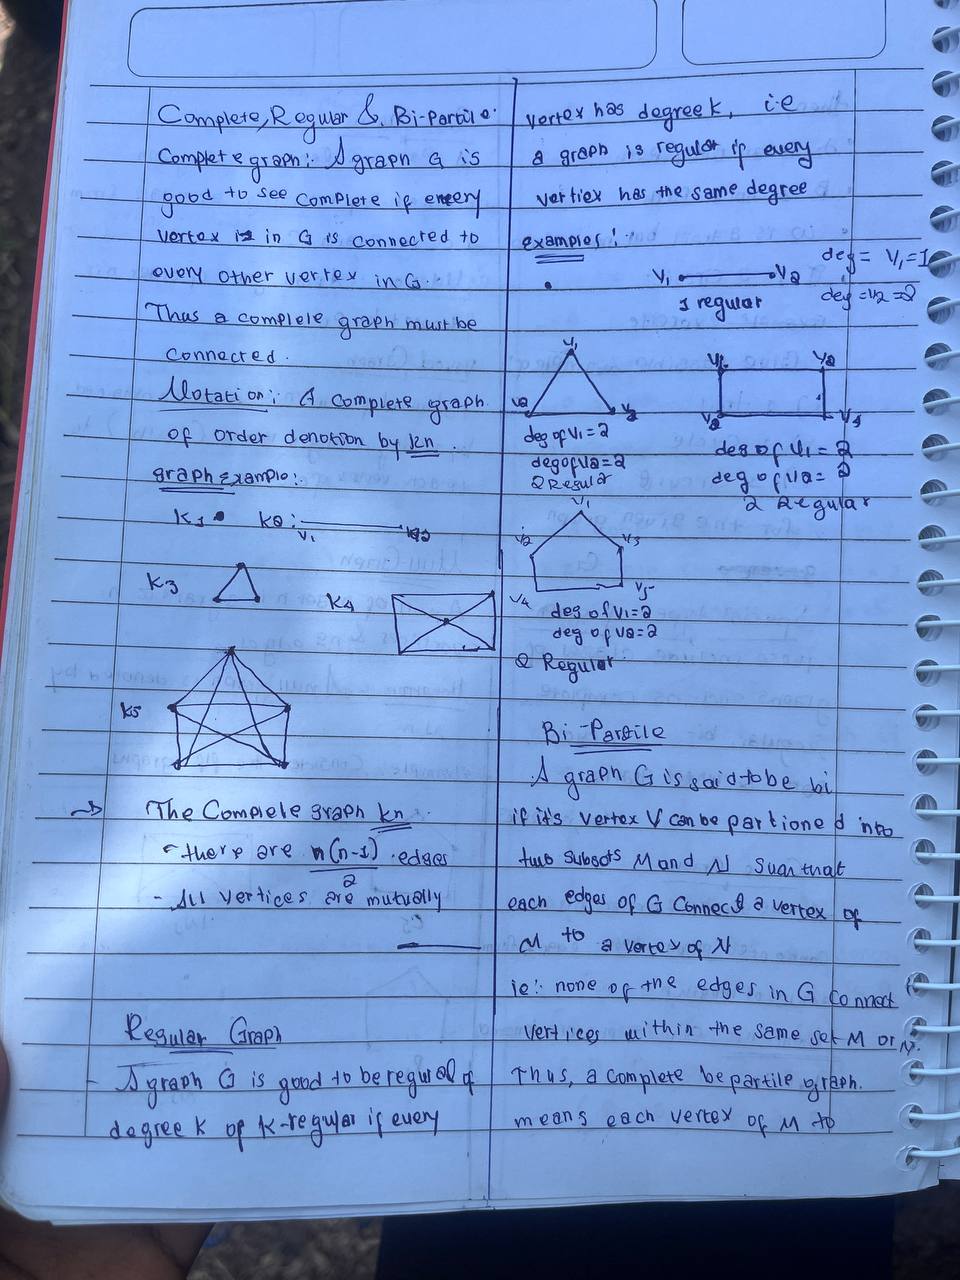 Complete, Regular & Bi-Partile.
Complete graph: A graph G is
good to see complete if every
vertex is in G is connected to
every other vertex in G.
Thus a complele graph must be
connected.
Notation: A complete graph
of order denotion by kn.
graph Example:
K1 K2:
V1
K3
K4
K5
The Complete graph kn.
- there are n(n-1) edges
2
- All vertices are mutually
Regular Graph
- A graph G is good to be regural of
degree K of K-regular if every
vertex has degree k, i.e
a graph is regular if every
vertiex has the same degree
examples:
V1 V2 deg = V1=1
1 regular deg = V2 = 2
V1
V2 V3
deg of V1 = 2
deg of V2 = 2
2 Regular
V1 V2
V3 V4
deg of V1 = 2
deg of V2 = 2
2 Regular
V1
V2 V3
V4 V5
deg of V1=2
deg of V2=2
2 Regular.
Bi-Partile
A graph G is said to be bi
if it's vertex V can be partioned into
two subsets M and N suan that
each edges of G Connect a vertex of
M to a vertex of N
ie: none of the edges in G connect
vertices within the same set M or N.
Thus, a complete be partile graph.
means each vertex of M to